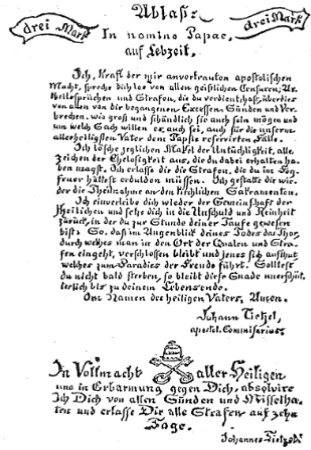 Ablaß-
drei Mark
drei Mark
In nomino Papae,
auf Lebzeit.
Ich, Kraft der mir anvertrauten apostolischen
Macht, spreche dich los von allen geistlichen Censuren, Ur-
theilssprüchen und Strafen, die du verdient hast, überdies
von allen von dir begangenen Excessen, Sünden und Ver-
brechen, wie groß und schändlich sie auch sein mögen und
um welch Sach willen es auch sei, auch für die unserm
allerheiligsten Vater dem Papste reservirten Fälle.
Ich lösche jeglichen Makel der Untüchtigkeit, alle
Zeichen der Ehrlosigkeit aus, die du dabei erhalten ha-
ben magst. Ich erlasse dir die Strafen, die du im Feg-
feuer hättest erdulden müssen. Ich gestatte dir wie-
der die Theilnahme an den kirchlichen Sakramenten.
Ich einverleibe dich wieder der Gemeinschaft der
Heiligen und setze dich in die Unschuld und Reinheit
zurück, in der du zur Stunde deiner Taufe gewesen
bist. So, daß im Augenblick deines Todes das Thor,
durch welches man in den Ort der Qualen und Stra-
fen eingeht, verschlossen bleibt und jenes sich aufthut
welches zum Paradies der Freude führt. Solltest
du nicht bald sterben, so bleibt diese Gnade unerschüt-
terlich bis zu deinem Lebensende.
Im Namen des heiligen Vaters, Amen.
Johann Tietzel,
apostol. Commisarius.
In Vollmacht aller Heiligen
und in Erbarmung gegen Dich, absolvire
Ich Dich von allen Sünden und Missetha-
ten und erlasse Dir alle Strafen auf zehn
Tage.
Johannes Tietzel